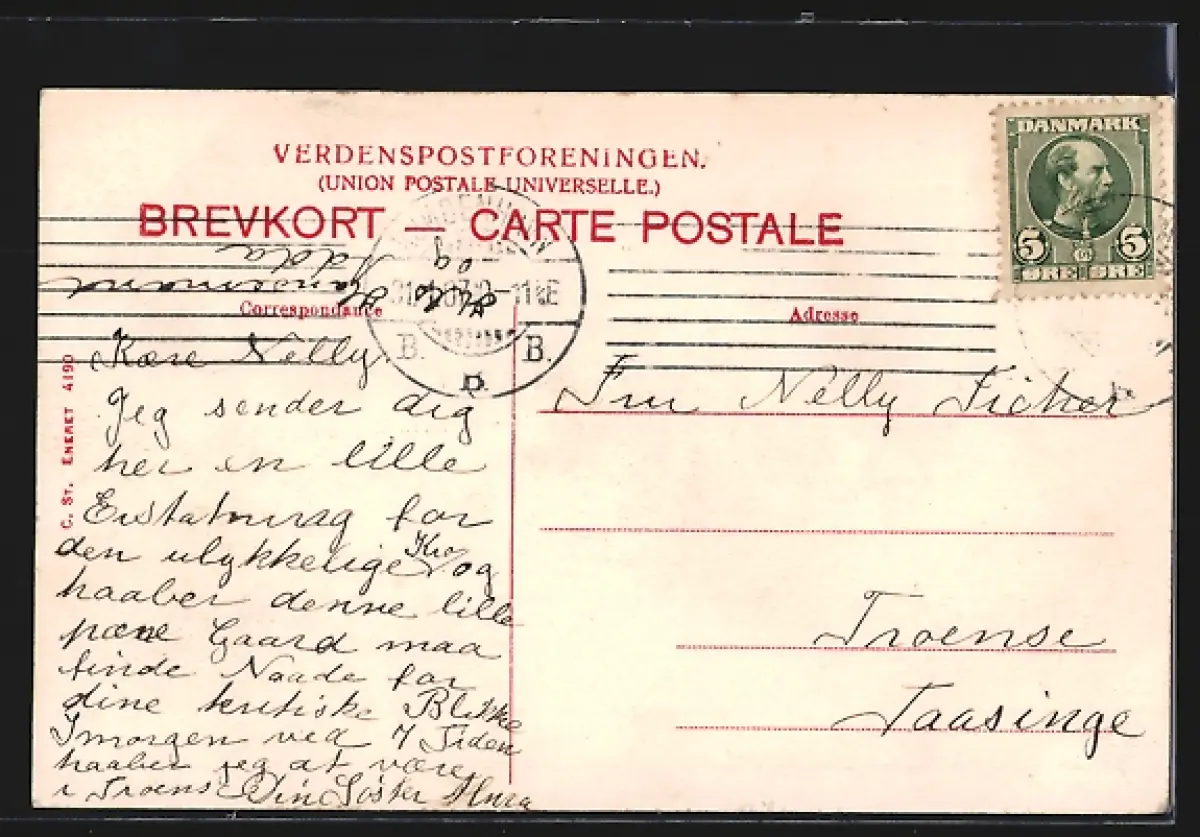 VERDENSPOSTFORENINGEN.
(UNION POSTALE UNIVERSELLE.)
BREVKORT — CARTE POSTALE
Correspondance
Adresse
DANMARK
5 5
ØRE ØRE
B. B.
C. ST. ENERET 4190
og
Adda
Kære Nelly.
Jeg sender dig
her en lille
Erstatning for
den ulykkelige Kro og
haaber denne lille
pæne Gaard maa
finde Naade for
dine kritiske Blikke
Imorgen ved 7 Tiden
haaber jeg at være
i Troense Din Søster
Fru Nelly Ficher
Troense
Taasinge